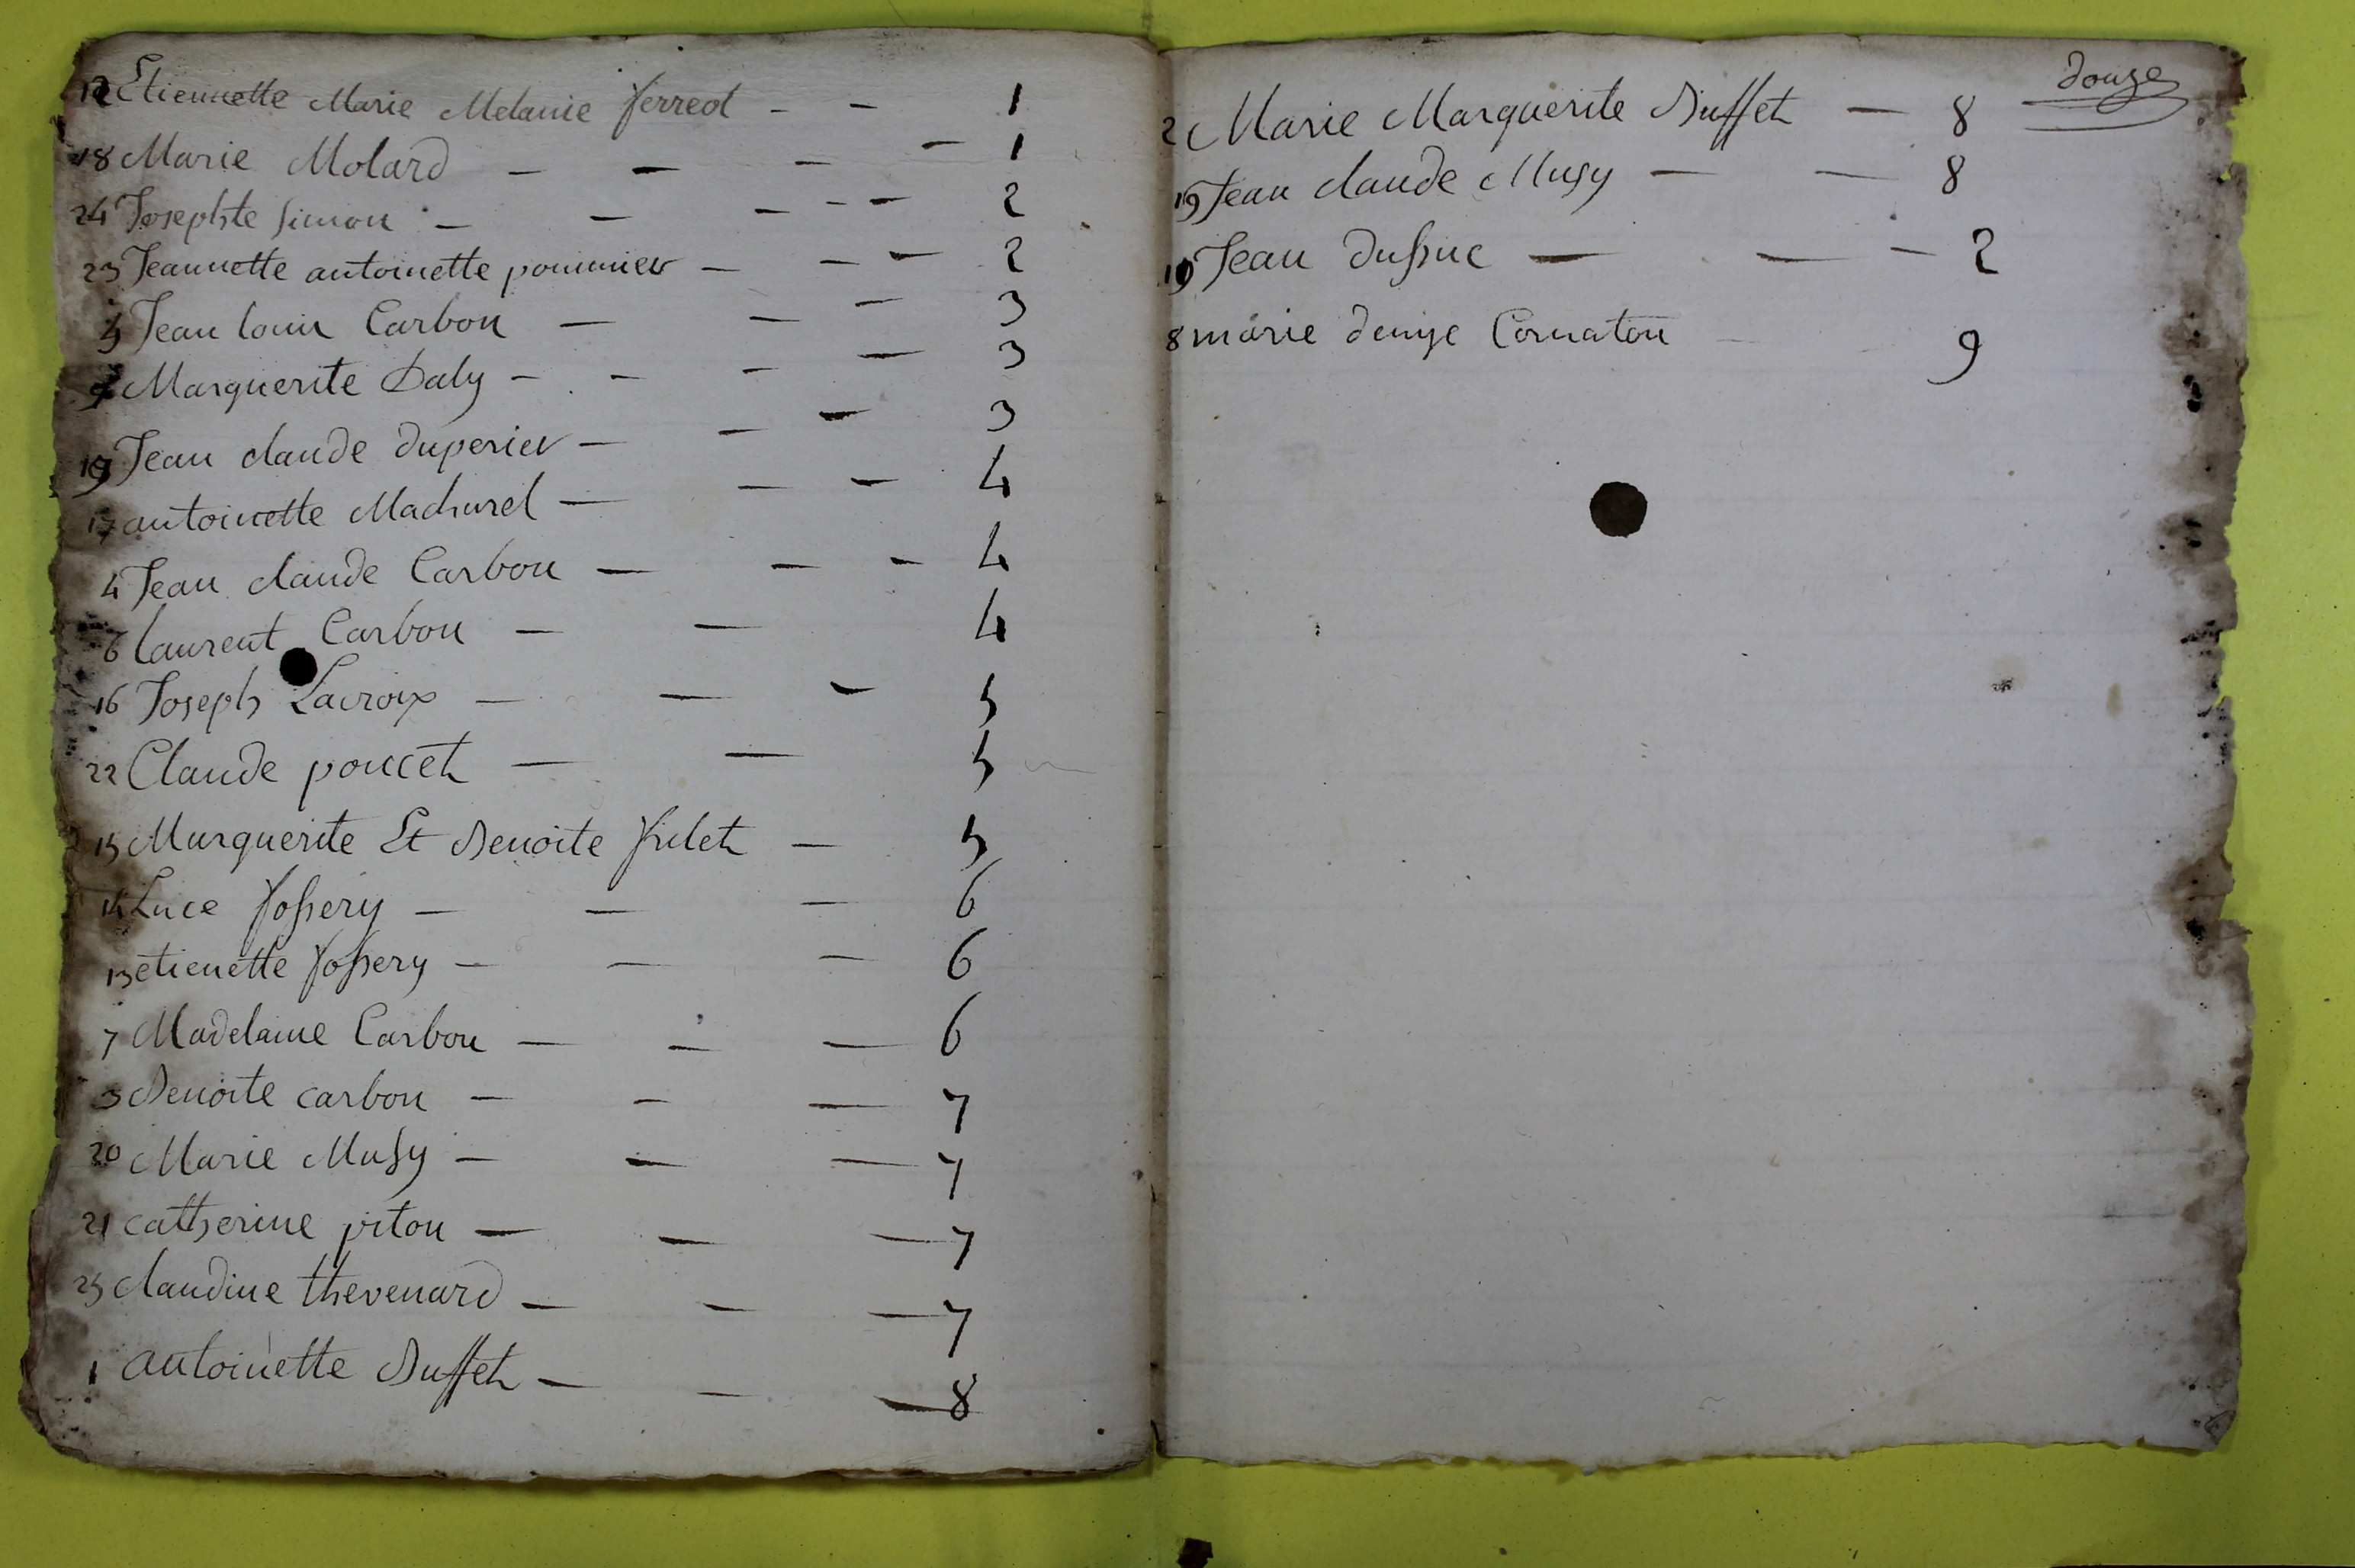 12 Etiennette Marie Melanie ferreol - - 1
18 Marie Molard - - - - 1
24 Josephte Simon - - - - - 2
23 Jeannette antoinette pommier - - - 2
5 Jean louis Carbon - - - 3
9 Marguerite Daly - - - - 3
10 Jean claude duperier - - - 3
17 antoinette Machurel - - - 4
4 Jean claude Carbon - - - 4
6 laurent Carbon - - 4
16 Joseph Lacroix - - - 5
22 Claude poncet - - 5
15 Marguerite Et Benoite filet - 5
14 Luce fossery - - - 6
13 etienette fossery - - - 6
7 Madelaine Carbon - - - 6
3 Benoite carbon - - - 7
20 Marie Musy - - - 7
21 catherine piton - - - 7
25 claudine thevenard - - - 7
1 antoinette Buffet - - - 8
douze
2 Marie Marguerite Buffet - 8
19 Jean claude Musy - - 8
Jean dussuc - - - 2
8 marie denise Cornaton 9